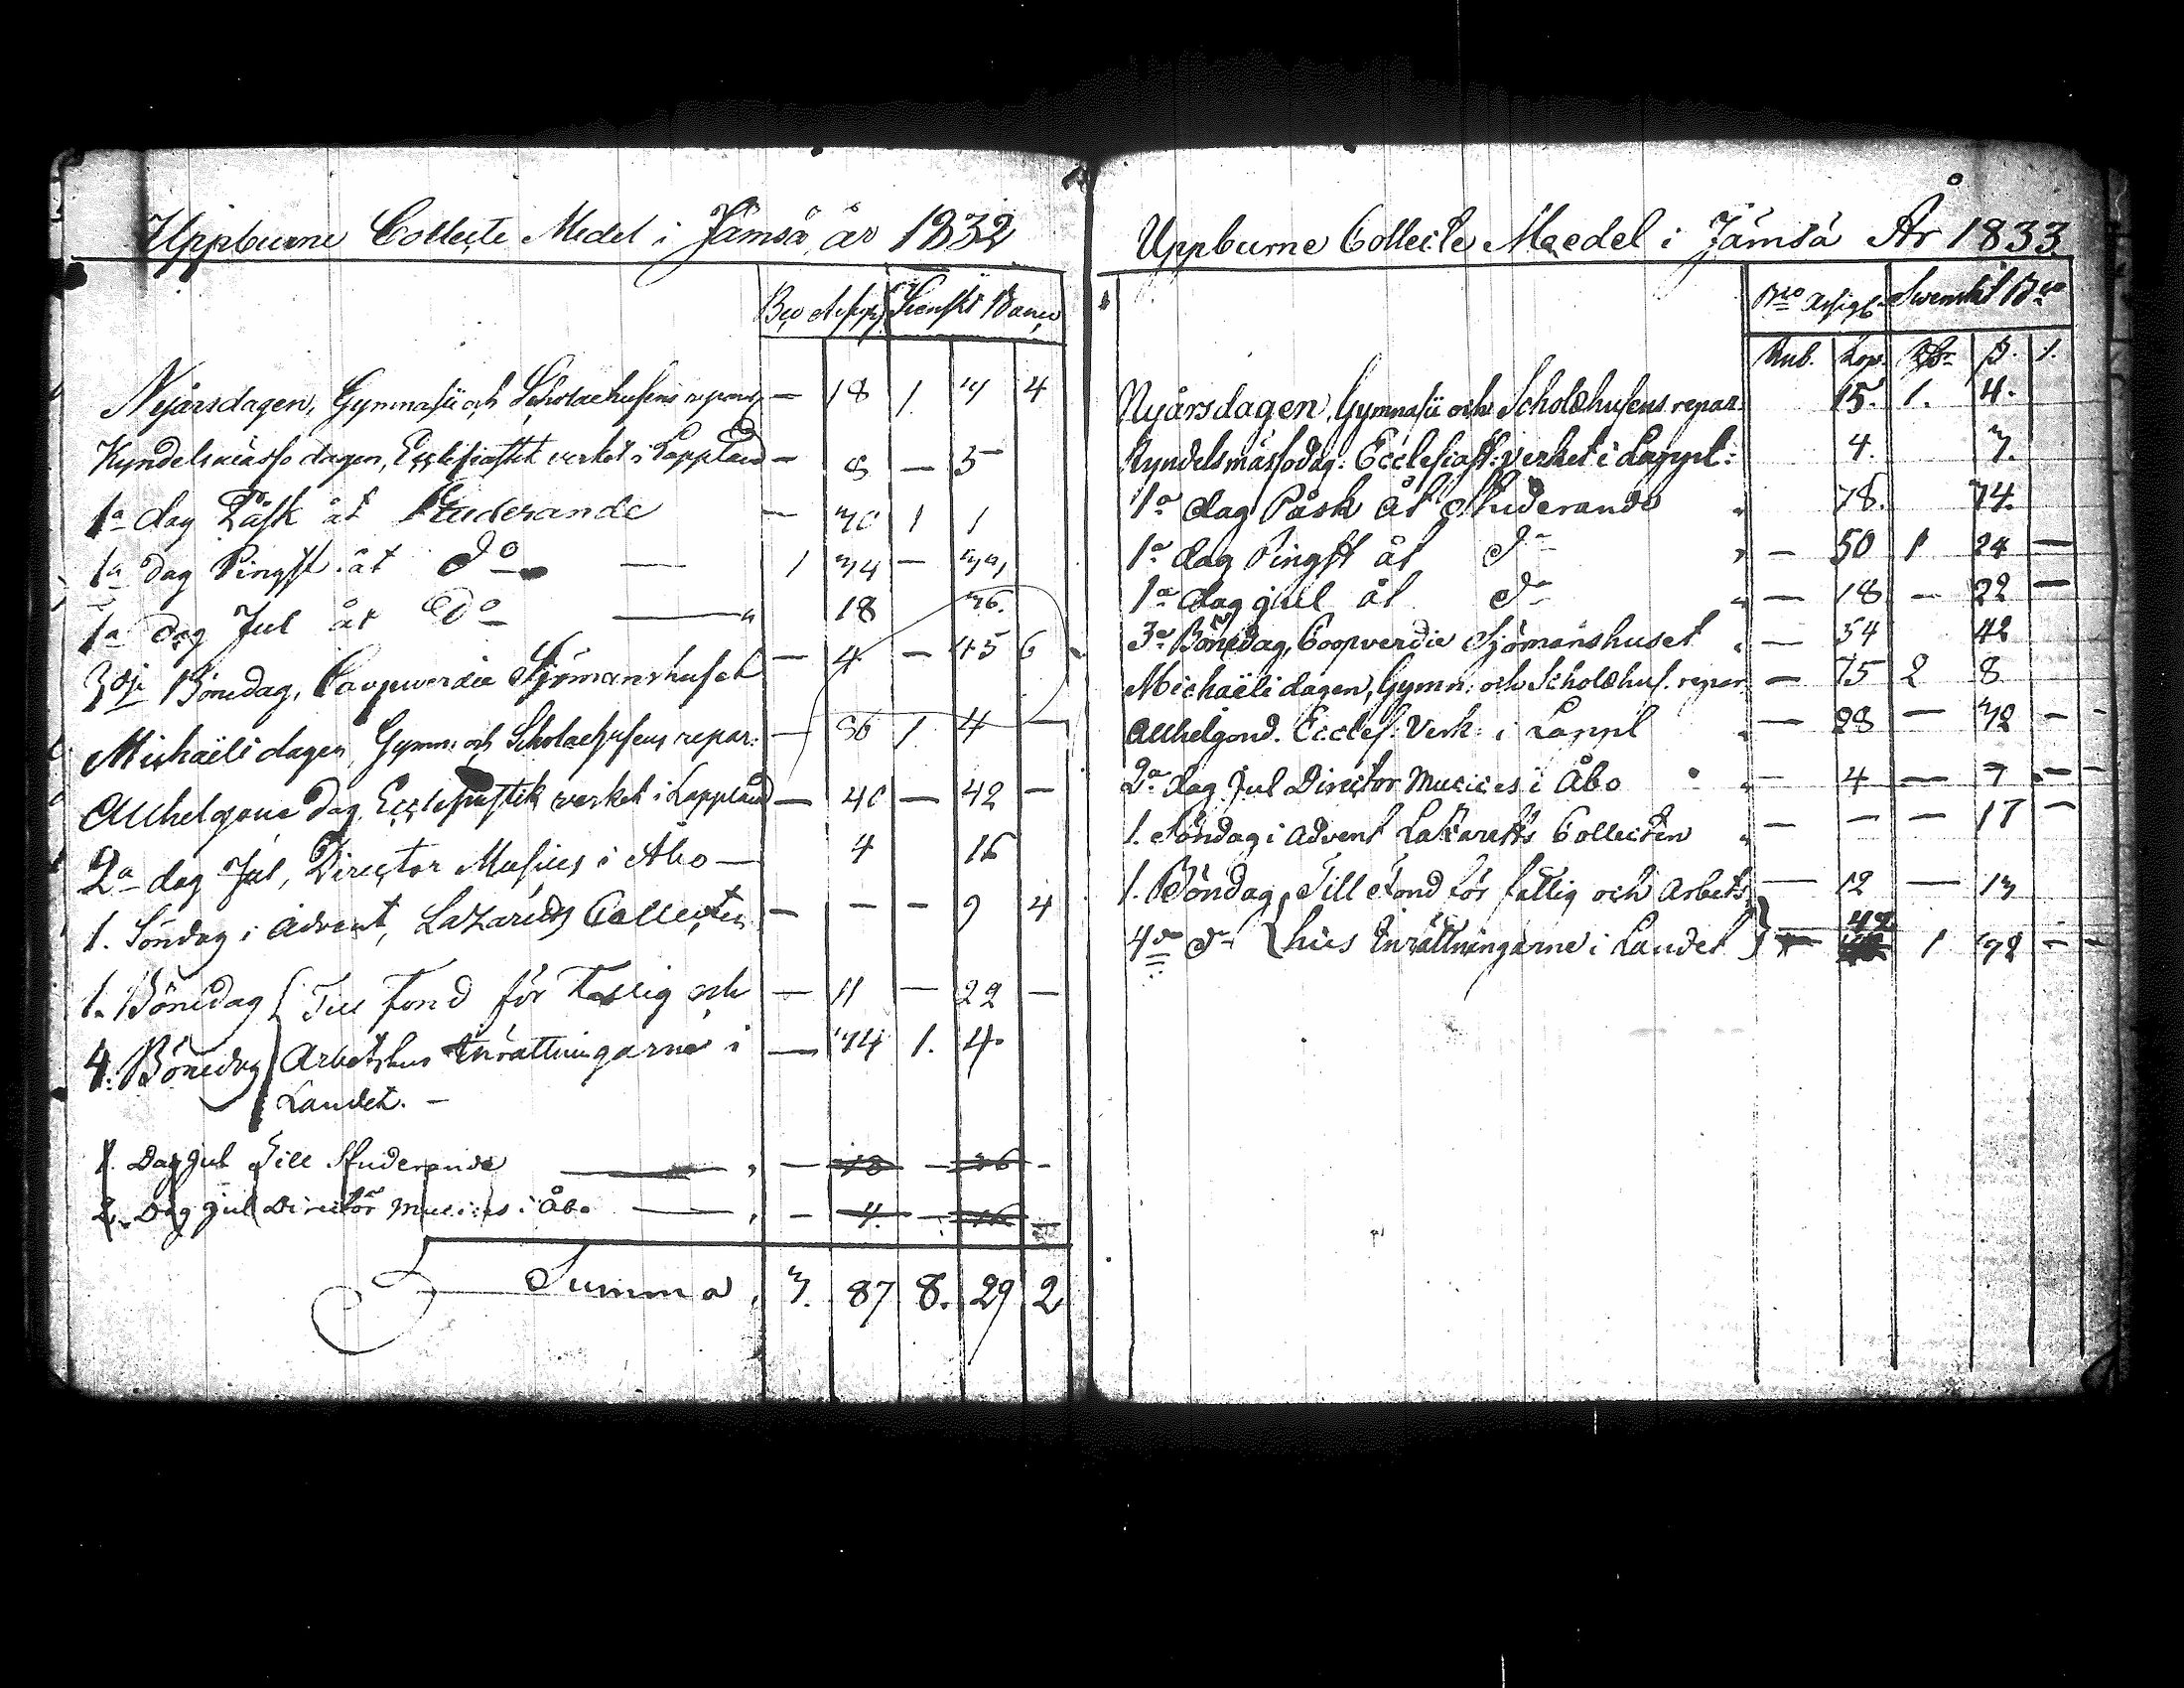 Uppburne Collecte Medel i Jämsä år 1832
Bco Assign Svenskt Banco
Nyårsdagen, Gymnasii och Scholaehusens repar. — 18 1. 7 4
Kyndelsmässo dagen, Ecclesiastik verket i Lappland — 8 — 5
1a dag Påsk åt Studerande — 70 1 1
1a dag Pingst åt do — 1 74 —
1a dag Jul åt do — 18 16.
3dje Bönedag, Coopverdie Sjömanshuset — 4 — 45 6
Michaëli dagen Gymn: och Scholaehusens repar: — 86 1. 4 —
Allhelgona dag Ecclesiastik verket i Lappland — 40 — 42 —
2a dag Jul, Director Musices i Åbo — 4 16
1. Söndag i Advent, Lazaretts Collecten — — — 9 4
1. Bönedag { Till Fond för Fattig och — 11 — 22 —
4. Bönedag Arbetshus Inrättningarne i — 74 1. 4.
Landet. —
1. Dag Jul Till Studerande — 18 — 16 —
2. Dag Jul Director Musices i Åbo — 4. — 16 —
Summa, 7. 87 8. 29 2
Uppburne Collecte Maedel i Jämsä År 1833
Bco Assign. Swenskt Bco
Rub. Kop. Rdr. ß. r.
Nyårsdagen, Gymnasii och Scholæhusens repar. 15. 1. 4.
Kyndelsmässodag: Ecclesiast: verket i Lappl: 4. 7.
1a dag Påsk åt Studerande " 78. 74.
1a dag Pingst åt do " — 50 1 24 —
1a dag jul åt do " — 18 — 22 —
3e Bönedag, Coopverdie Sjömanshuset " — 54 42
Michaëli dagen, Gymn: och Scholæhus. repar — 75 2 8
Allhelgond. Eccles: Verk: i Lappl " — 28 — 72 — -
2a dag Jul Director Musices i Åbo " — 4 — 7 — —
1. Söndag i Advent Lazaretts Collecten " — — — 17 —
1. Böndag, Till Fond för fattig och Arbets — 12 — 13
4de do { hus Inrättningarne i Landet } — 42 1 72 — -